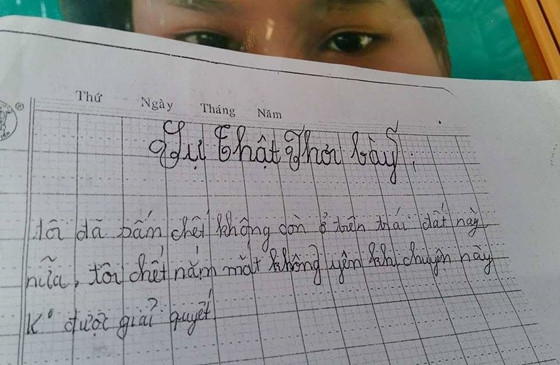 Thứ Ngày Tháng Năm
Sự thật Phơi bày:
tôi đã bấn chết không còn ở trên trái đất này
nữa, tôi chết nắm mắt không yên khi chuyện này
K° được giải quyết